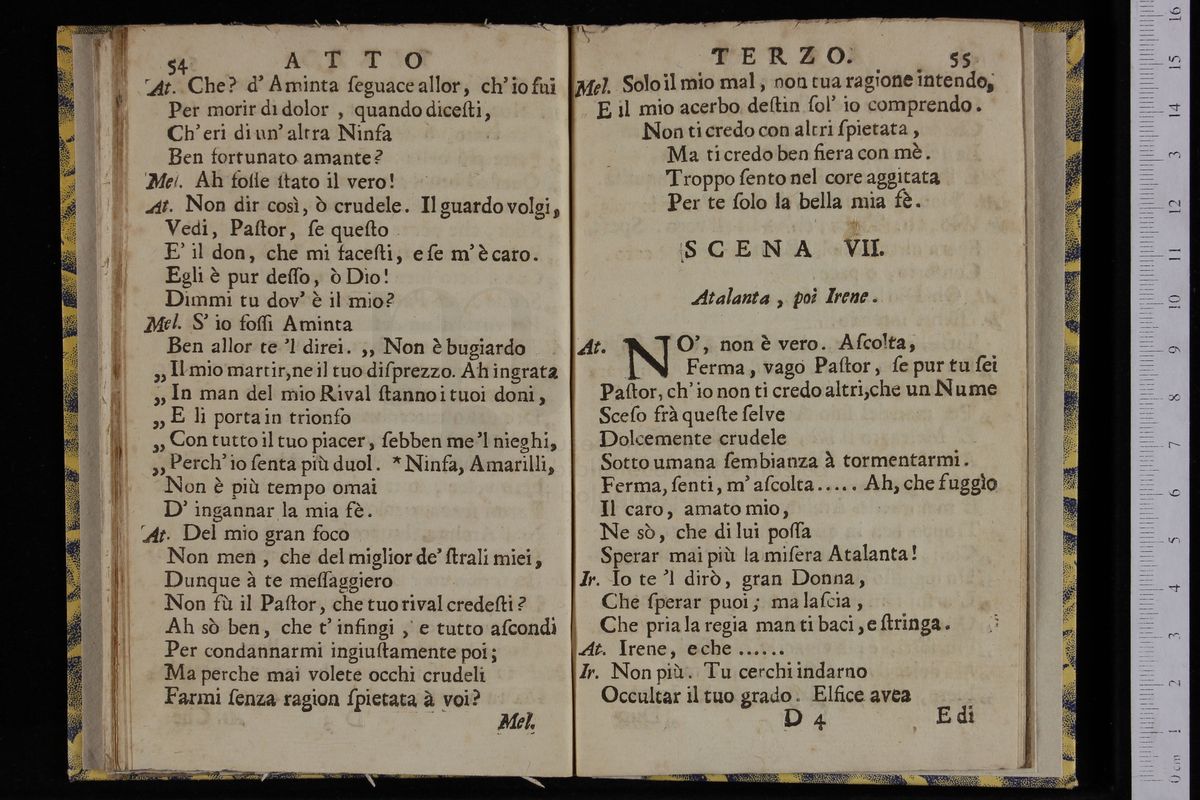 54 ATTO
At. Che? d' Aminta ſeguace allor, ch' io fui
Per morir di dolor, quando diceſti,
Ch' eri di un' altra Ninfa
Ben fortunato amante?
Mel. Ah foſſe ſtato il vero!
At. Non dir così, ò crudele. Il guardo volgi,
Vedi, Paſtor, ſe queſto
E' il don, che mi faceſti, e ſe m' è caro.
Egli è pur deſſo, ò Dio!
Dimmi tu dov' è il mio?
Mel. S' io foſſi Aminta
Ben allor te 'l direi. ,, Non è bugiardo
,, Il mio martir, ne il tuo diſprezzo. Ah ingrata
,, In man del mio Rival ſtanno i tuoi doni,
,, E li porta in trionfo
,, Con tutto il tuo piacer, ſebben me 'l nieghi,
,, Perch' io ſenta più duol. * Ninfa, Amarilli,
Non è più tempo omai
D' ingannar la mia fè.
At. Del mio gran foco
Non men, che del miglior de' ſtrali miei,
Dunque à te meſſaggiero
Non fù il Paſtor, che tuo rival credeſti?
Ah sò ben, che t' infingi, e tutto aſcondi
Per condannarmi ingiuſtamente poi;
Ma perche mai volete occhi crudeli
Farmi ſenza ragion ſpietata à voi?
Mel.
TERZO. 55
Mel. Solo il mio mal, non tua ragione intendo,
E il mio acerbo deſtin ſol' io comprendo.
Non ti credo con altri ſpietata,
Ma ti credo ben fiera con mè.
Troppo ſento nel core aggitata
Per te ſolo la bella mia fè.
SCENA VII.
Atalanta, poi Irene.
At. NO', non è vero. Aſcolta,
Ferma, vago Paſtor, ſe pur tu ſei
Paſtor, ch' io non ti credo altri, che un Nume
Sceſo frà queſte ſelve
Dolcemente crudele
Sotto umana ſembianza à tormentarmi.
Ferma, ſenti, m' aſcolta..... Ah, che fuggìo
Il caro, amato mio,
Ne sò, che di lui poſſa
Sperar mai più la miſera Atalanta!
Ir. Io te 'l dirò, gran Donna,
Che ſperar puoi; ma laſcia,
Che pria la regia man ti baci, e ſtringa.
At. Irene, e che ......
Ir. Non più. Tu cerchi indarno
Occultar il tuo grado. Elfice avea
D 4 E di
0 cm 1 2 3 4 5 6 7 8 9 10 11 12 13 14 15 16